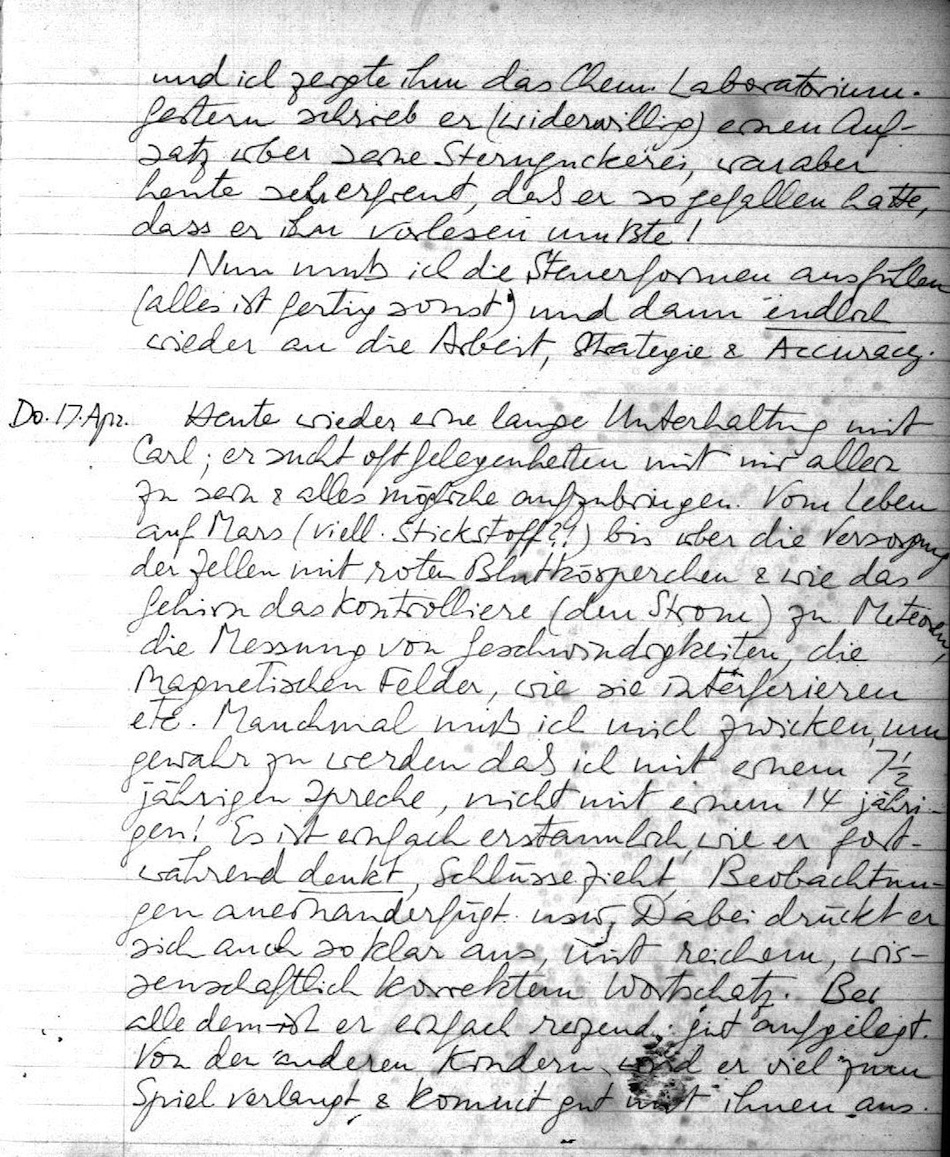 und ich zeigte ihm das Chem. Laboratorium.
Gestern schrieb er (widerwillig) einen Auf-
satz über seine Sternguckerei, war aber
heute sehr erfreut, daß er so gefallen hatte,
dass er ihn vorlesen mußte!
Nun muß ich die Steuerformen ausfüllen
(alles ist fertig sonst) und dann endlich
wieder an die Arbeit, Strategie & Accuracy.
Do. 17. Apr. Heute wieder eine lange Unterhaltung mit
Carl; er sucht oft Gelegenheiten mit mir allein
zu sein & alles mögliche aufzubringen. Vom Leben
auf Mars (viell. Stickstoff?!) bis über die Versorgung
der Zellen mit roten Blutkörperchen & wie das
Gehirn das kontrolliere (den Strom) zu Meteoren,
die Messung von Geschwindigkeiten, die
Magnetischen Felder, wie sie interferieren
etc. Manchmal muß ich mich zwicken, um
gewahr zu werden daß ich mit einem 7½
jährigen spreche, nicht mit einem 14 jähri-
gen! Es ist einfach erstaunlich, wie er fort-
während denkt, Schlüsse zieht, Beobachtun-
gen aneinanderfügt usw. Dabei drückt er
sich auch so klar aus, mit reichem, wis-
senschaftlich korrektem Wortschatz. Bei
alle dem ist er einfach reizend, gut aufgelegt.
Von den anderen Kindern wird er viel zum
Spiel verlangt & kommt gut mit ihnen aus.